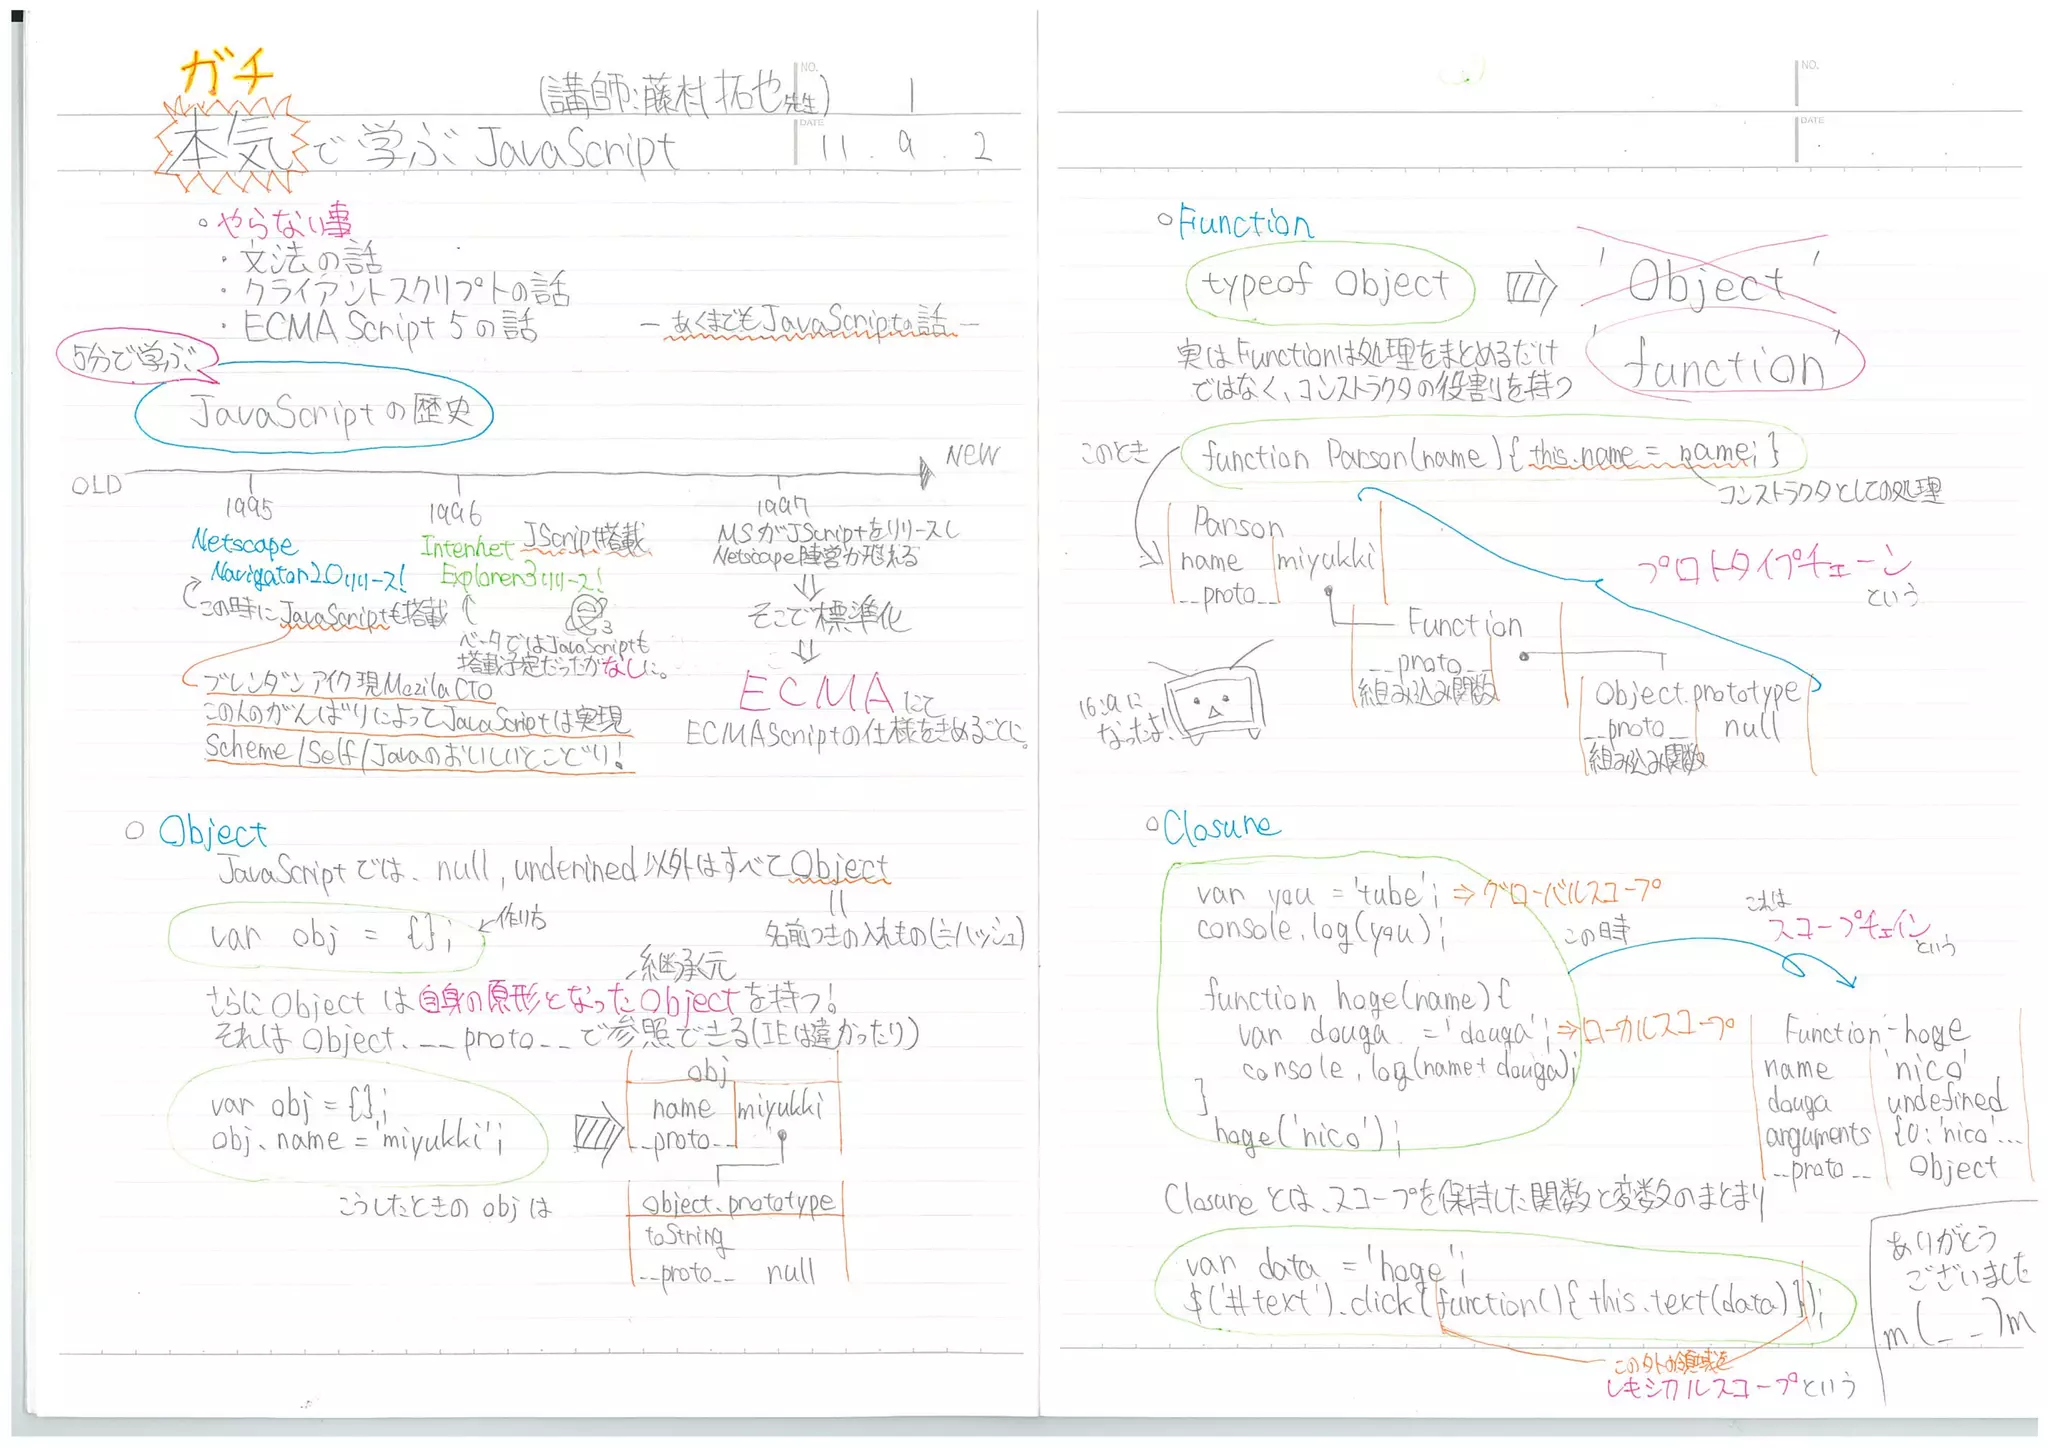 ガチ
(講師:藤村拓也先生)
NO.
1
本気で学ぶJavaScript
DATE
11. 9. 2
○やらない事
・文法の話
・クライアントスクリプトの話
・ECMA Script 5の話
－あくまでもJavaScriptの話－
5分で学ぶ
JavaScriptの歴史
OLD
NEW
1995
Netscape
Navigator2.0リリース!
この時にJavaScriptも搭載
ブレンダンアイク現MozilaCTO
この人のがんばりによってJavaScriptは実現
Scheme/Self/Javaのおいしいとこどり!
1996
Internet
Explorer3リリース!
JScript搭載
3
ベータではJavaScriptも
搭載予定だったがなしに。
1997
MSがJScriptをリリースし
Netscape陣営が荒れる
そこで標準化
ECMAにて
ECMAScriptの仕様をきめることに。
○Object
JavaScriptでは、null, undefined以外はすべてObject
var obj = {};
作り方
名前つきの入れもの(≒ハッシュ)
継承元
さらにObjectは自身の原形となったObjectを持つ!
それはObject.__proto__で参照できる(IEは違かったり)
var obj = {};
obj.name = 'miyukki';
こうしたときのobjは
obj
name miyukki
__proto__
Object.prototype
toString
__proto__ null
NO.
DATE
○Function
typeof Object
'Object'
'function'
実はFunctionは処理をまとめるだけ
ではなく、コンストラクタの役割を持つ
このとき
function Parson(name){ this.name = name; }
コンストラクタとしての処理
Parson
name miyukki
__proto__
プロトタイプチェーン
という
Function
__proto__
組み込み関数
Object.prototype
__proto__ null
組み込み関数
16:29に
なったよ!
○Closure
var you = 'tube'; ⇒グローバルスコープ
console.log(you);
function hoge(name){
var douga = 'douga'; ⇒ローカルスコープ
console.log(name+douga);
}
hoge('nico');
この時
これは
スコープチェイン
という
Function-hoge
name 'nico'
douga undefined
arguments {0:'nico'...
__proto__ Object
Closureとは、スコープを保持した関数と変数のまとまり
var data = 'hoge';
$('#text').click(function(){ this.text(data) });
この外の領域を
レキシカルスコープという
ありがとう
ございました
m(_ _)m